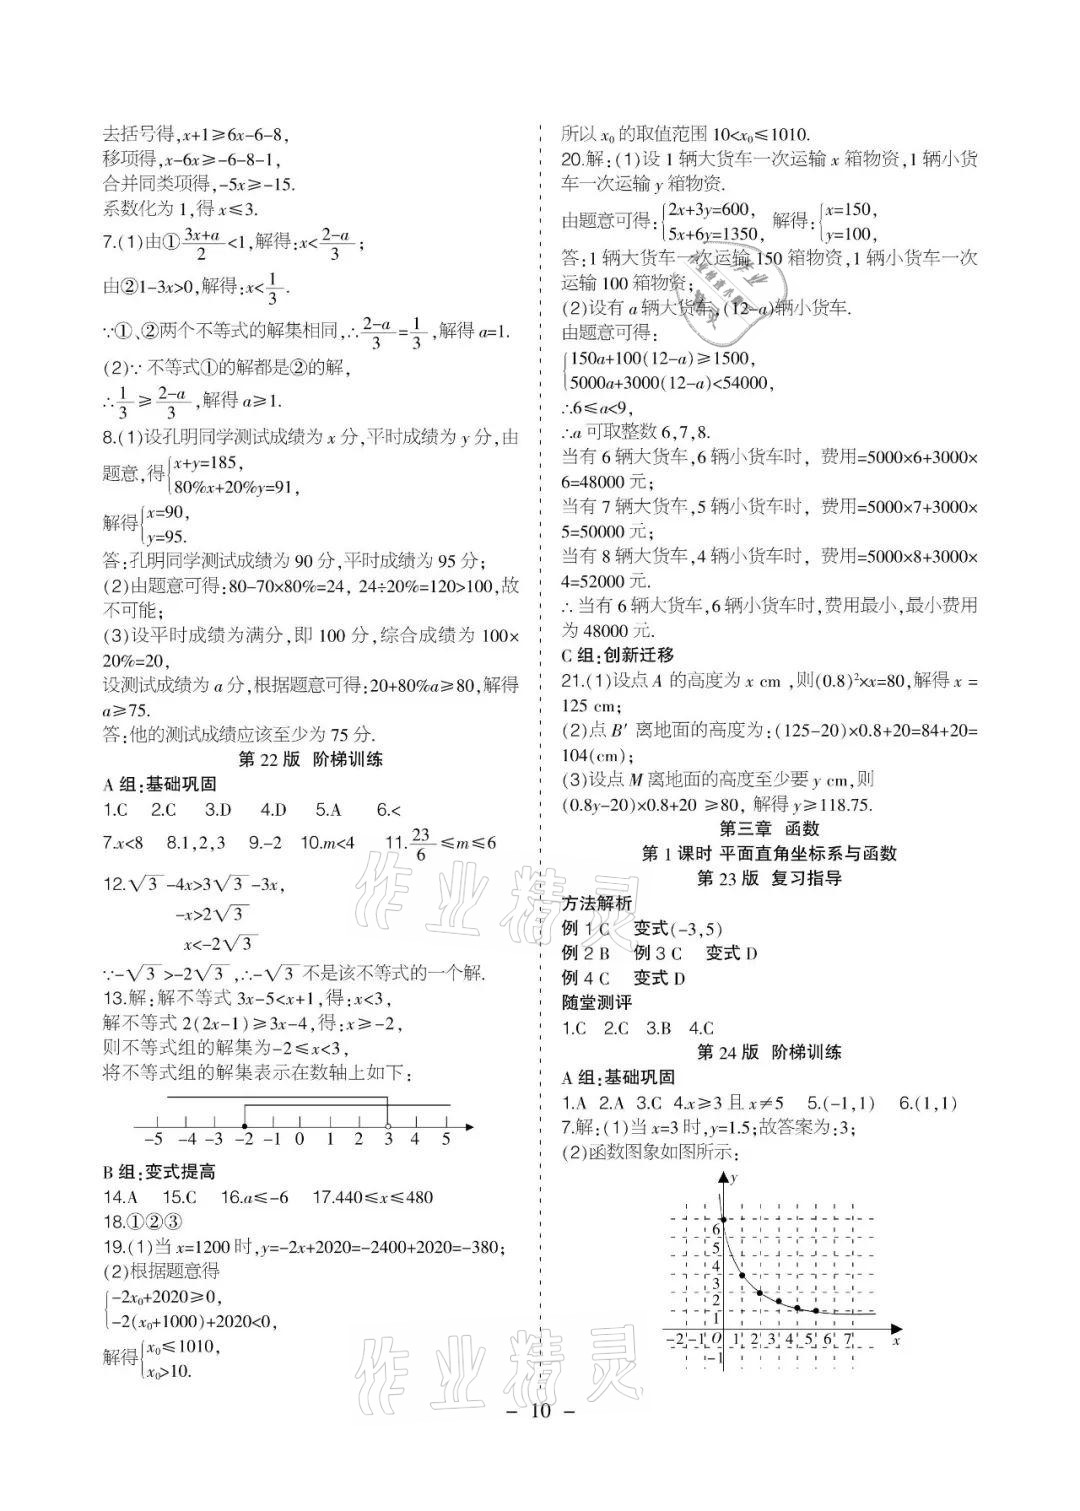 去括号得,x+1≥6x-6-8,
移项得,x-6x≥-6-8-1,
合并同类项得,-5x≥-15.
系数化为 1,得 x≤3.
7.(1)由①(3x+a)/2<1,解得:x<(2-a)/3;
由②1-3x>0,解得:x<1/3.
∵①、②两个不等式的解集相同,∴(2-a)/3=1/3,解得 a=1.
(2)∵不等式①的解都是②的解,
∴1/3≥(2-a)/3,解得 a≥1.
8.(1)设孔明同学测试成绩为 x 分,平时成绩为 y 分,由
题意,得{x+y=185,
80%x+20%y=91,
解得{x=90,
y=95.
答:孔明同学测试成绩为 90 分,平时成绩为 95 分;
(2)由题意可得:80-70×80%=24, 24÷20%=120>100,故
不可能;
(3)设平时成绩为满分,即 100 分,综合成绩为 100×
20%=20,
设测试成绩为 a 分,根据题意可得:20+80%a≥80,解得
a≥75.
答:他的测试成绩应该至少为 75 分.
第 22 版 阶梯训练
A 组:基础巩固
1.C 2.C 3.D 4.D 5.A 6.<
7.x<8 8.1,2,3 9.-2 10.m<4 11.23/6≤m≤6
12.√3-4x>3√3-3x,
-x>2√3
x<-2√3
∵-√3>-2√3,∴-√3不是该不等式的一个解.
13.解:解不等式 3x-5<x+1,得:x<3,
解不等式 2(2x-1)≥3x-4,得:x≥-2,
则不等式组的解集为-2≤x<3,
将不等式组的解集表示在数轴上如下:
-5 -4 -3 -2 -1 0 1 2 3 4 5
B 组:变式提高
14.A 15.C 16.a≤-6 17.440≤x≤480
18.①②③
19.(1)当 x=1200 时,y=-2x+2020=-2400+2020=-380;
(2)根据题意得
{-2x₀+2020≥0,
-2(x₀+1000)+2020<0,
解得{x₀≤1010,
x₀>10.
所以 x₀ 的取值范围 10<x₀≤1010.
20.解:(1)设 1 辆大货车一次运输 x 箱物资,1 辆小货
车一次运输 y 箱物资.
由题意可得:{2x+3y=600, 解得:{x=150,
5x+6y=1350, y=100,
答:1 辆大货车一次运输 150 箱物资,1 辆小货车一次
运输 100 箱物资;
(2)设有 a 辆大货车,(12-a)辆小货车.
由题意可得:
{150a+100(12-a)≥1500,
5000a+3000(12-a)<54000,
∴6≤a<9,
∴a 可取整数 6,7,8.
当有 6 辆大货车,6 辆小货车时, 费用=5000×6+3000×
6=48000 元;
当有 7 辆大货车,5 辆小货车时, 费用=5000×7+3000×
5=50000 元;
当有 8 辆大货车,4 辆小货车时, 费用=5000×8+3000×
4=52000 元.
∴当有 6 辆大货车,6 辆小货车时,费用最小,最小费用
为 48000 元.
C 组:创新迁移
21.(1)设点 A 的高度为 x cm ,则(0.8)²×x=80,解得 x =
125 cm;
(2)点 B′ 离地面的高度为:(125-20)×0.8+20=84+20=
104(cm);
(3)设点 M 离地面的高度至少要 y cm,则
(0.8y-20)×0.8+20 ≥80, 解得 y≥118.75.
第三章 函数
第 1 课时 平面直角坐标系与函数
第 23 版 复习指导
方法解析
例 1 C 变式(-3,5)
例 2 B 例 3 C 变式 D
例 4 C 变式 D
随堂测评
1.C 2.C 3.B 4.C
第 24 版 阶梯训练
A 组:基础巩固
1.A 2.A 3.C 4.x≥3 且 x≠5 5.(-1,1) 6.(1,1)
7.解:(1)当 x=3 时,y=1.5;故答案为:3;
(2)函数图象如图所示:
y
6
5
4
3
2
1
-2 -1 O 1 2 3 4 5 6 7 x
-1
作业精灵
作业精灵
- 10 -